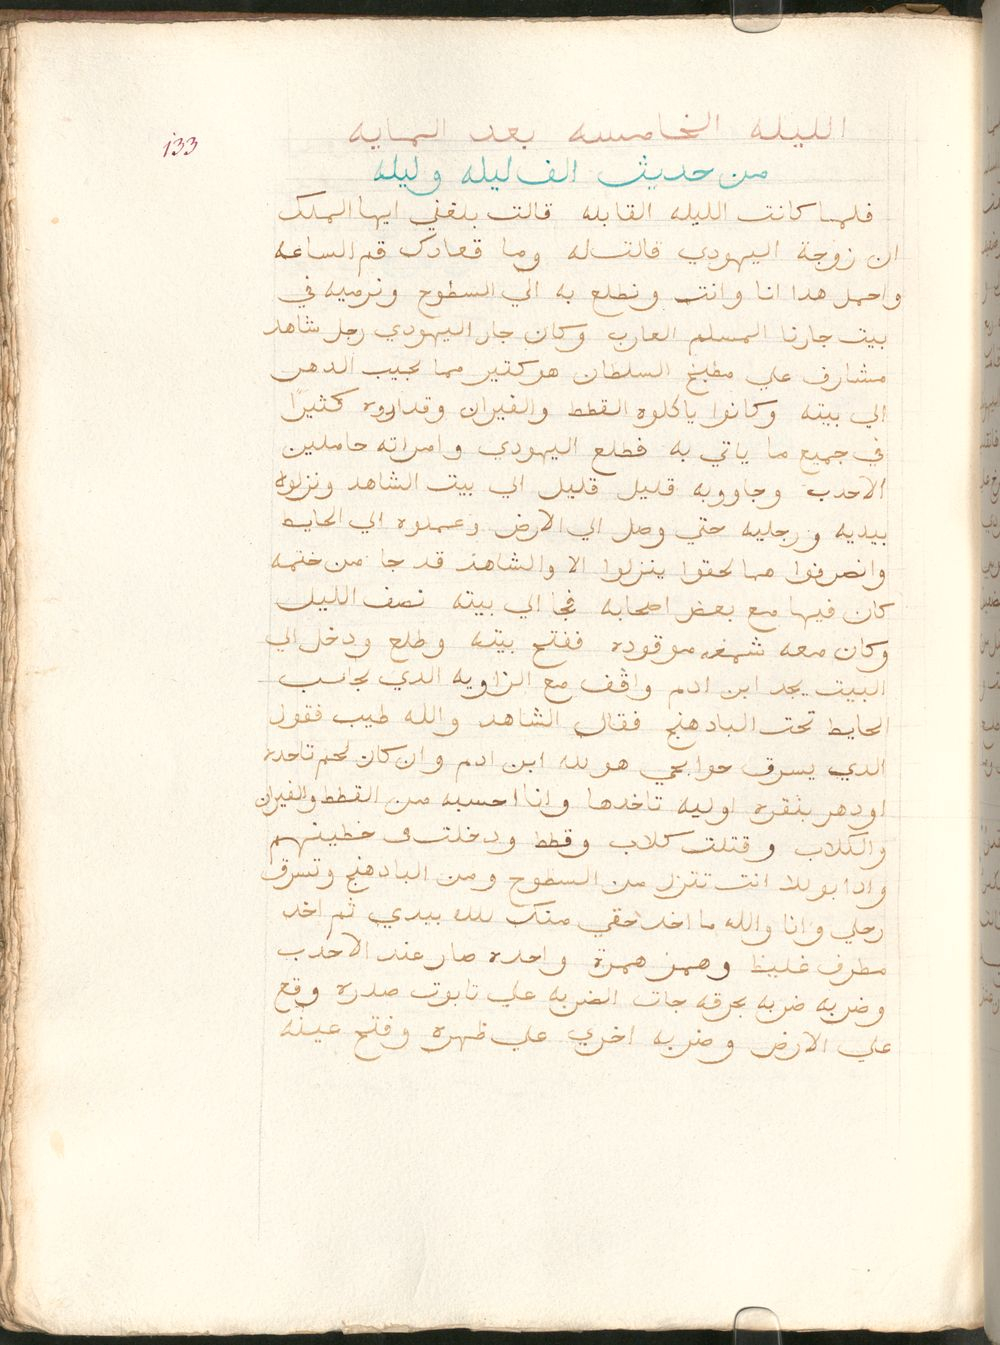 133
الليله الخامسه بعد المايه
من حديث الف ليله وليله
فلما كانت الليله القابله قالت بلغني ايها الملك
ان زوجة اليهودي قالت له وما قعادك قم الساعه
واحمل هدا انا وانت ونطلع به الي السطوح ونرميه في
بيت جارنا المسلم العازب وكان جار اليهودي رجل شاهد
مشارف علي مطبخ السلطان هو كتير مما يجيب الدهن
الي بيته وكانوا ياكلوه القطط والفيران وقد ادوه كثيرًا
في جميع ما ياتي به فطلع اليهودي وامراته حاملين
الاحدب وجاووبه قليل قليل الي بيت الشاهد ونزلوه
بيديه ورجليه حتي وصل الي الارض وعملوه الي الحايط
وانصرفوا فما لحقوا ينزلوا الا والشاهد قد جا من ختمه
كان فيها مع بعض اصحابه فجا الي بيته نصف الليل
وكان معه شمعه موقوده ففتح بيته وطلع ودخل الي
البيت يجد ابن ادم واقف مع الزاويه الدي بجانب
الحايط تحت البادهنج فقال الشاهد والله طيب فقول
الدي يسرق حوايجي هو لله ابن ادم وان كان لحم تاخده
او دهن بنقره او ليه تاخدها وانا احسبه من القطط والفيران
والكلاب وقتلت كلاب وقطط ودخلت في خطيتهم
وادا بولك انت تتزل من السطوح ومن البادهنج وتسرق
رحلي وانا والله ما اخد حقي منك لله بيدي ثم اخد
مطرف غليظ وهمز همزة واحده صار عند الاحدب
وضربه ضربه بحرقه جات الضربه علي تابوت صدره وقع
علي الارض وضربه اخري علي ظهره وفتح عينه